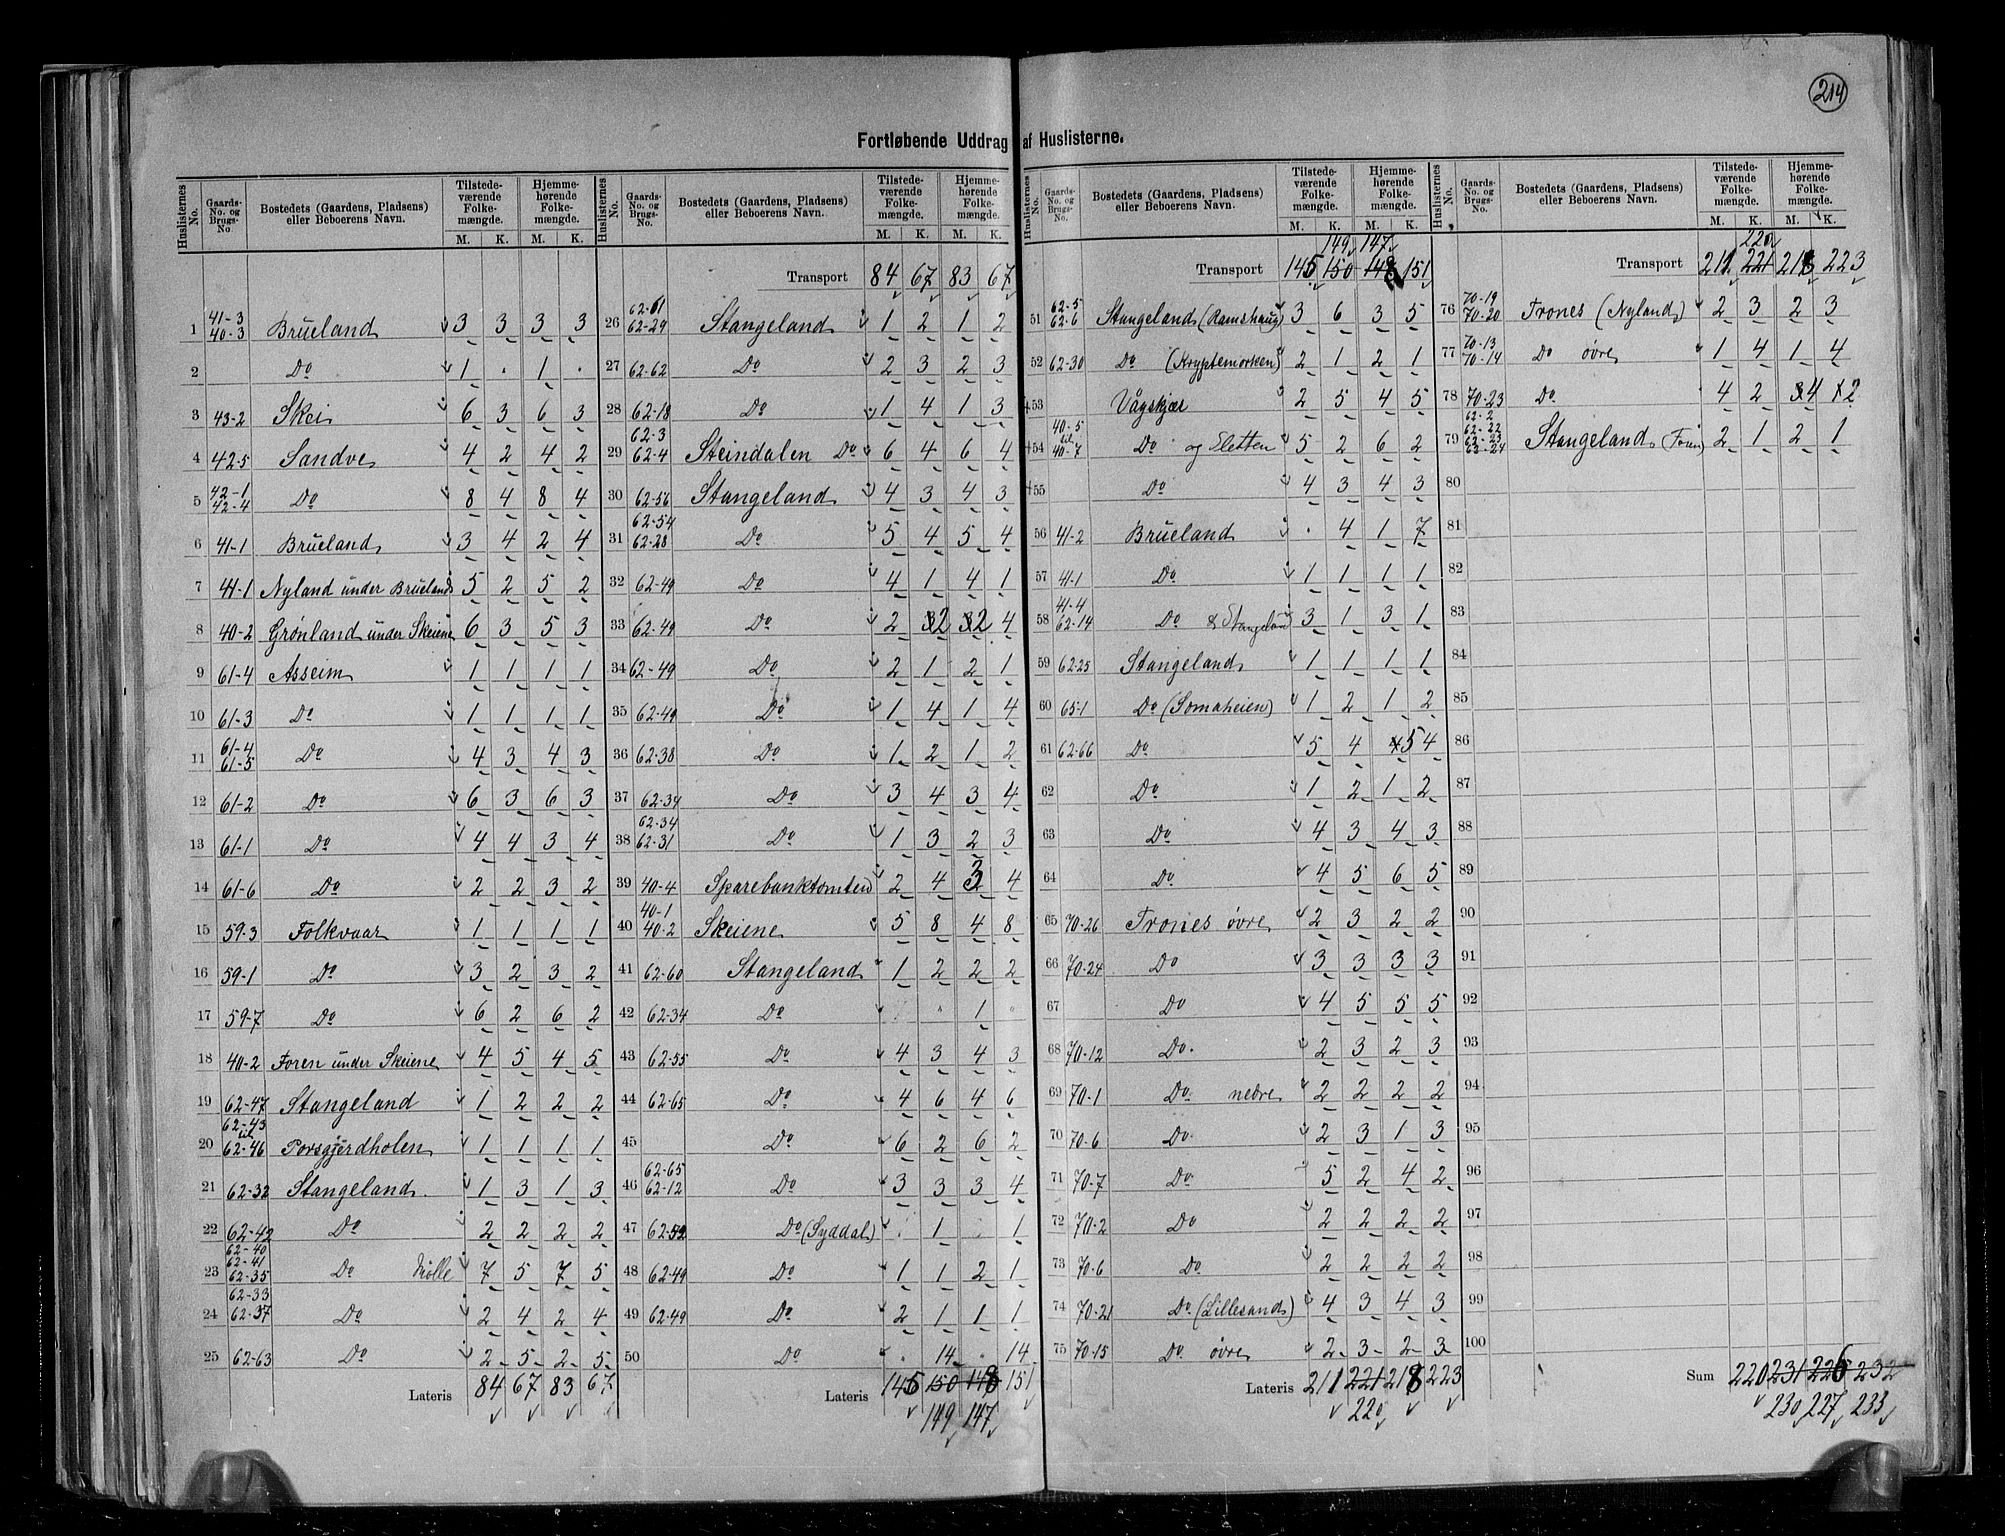 214
Fortløbende Uddrag af Huslisterne.
Huslisternes No. | Gaards-No. og Brugs-No. | Bostedets (Gaardens, Pladsens) eller Beboerens Navn. | Tilstedeværende Folkemængde. M. K. | Hjemmehørende Folkemængde. M. K.
1 | 41-3 40-3 | Brueland | 3 | 3 | 3 | 3
2 | | Do | 1 | . | 1 | .
3 | 43-2 | Skei | 6 | 3 | 6 | 3
4 | 42-5 | Sandve | 4 | 2 | 4 | 2
5 | 42-1 42-4 | Do | 8 | 4 | 8 | 4
6 | 41-1 | Brueland | 3 | 4 | 2 | 4
7 | 41-1 | Nyland under Brueland | 5 | 2 | 5 | 2
8 | 40-2 | Grønland under Skeiene | 6 | 3 | 5 | 3
9 | 61-4 | Asseim | 1 | 1 | 1 | 1
10 | 61-3 | Do | 1 | 1 | 1 | 1
11 | 61-4 61-5 | Do | 4 | 3 | 4 | 3
12 | 61-2 | Do | 6 | 3 | 6 | 3
13 | 61-1 | Do | 4 | 4 | 3 | 4
14 | 61-6 | Do | 2 | 2 | 3 | 2
15 | 59-3 | Folkvaar | 1 | 1 | 1 | 1
16 | 59-1 | Do | 3 | 2 | 3 | 2
17 | 59-7 | Do | 6 | 2 | 6 | 2
18 | 40-2 | Foren under Skeiene | 4 | 5 | 4 | 5
19 | 62-47 | Stangeland | 1 | 2 | 2 | 2
20 | 62-43 til 62-46 | Porsgjerdholen | 1 | 1 | 1 | 1
21 | 62-32 | Stangeland | 1 | 3 | 1 | 3
22 | 62-42 | Do | 2 | 2 | 2 | 2
23 | 62-40 62-41 62-35 | Do Mølle | 7 | 5 | 7 | 5
24 | 62-33 62-37 | Do | 2 | 4 | 2 | 4
25 | 62-63 | Do | 2 | 5 | 2 | 5
Lateris | 84 | 67 | 83 | 67
Huslisternes No. | Gaards-No. og Brugs-No. | Bostedets (Gaardens, Pladsens) eller Beboerens Navn. | Tilstedeværende Folkemængde. M. K. | Hjemmehørende Folkemængde. M. K.
Transport | 84 | 67 | 83 | 67
26 | 62-61 62-29 | Stangeland | 1 | 2 | 1 | 2
27 | 62-62 | Do | 2 | 3 | 2 | 3
28 | 62-18 | Do | 1 | 4 | 1 | 3
29 | 62-3 62-4 | Steindalen Do | 6 | 4 | 6 | 4
30 | 62-56 | Stangeland | 4 | 3 | 4 | 3
31 | 62-54 62-28 | Do | 5 | 4 | 5 | 4
32 | 62-49 | Do | 4 | 1 | 4 | 1
33 | 62-49 | Do | 2 | 3 2 | 3 2 | 4
34 | 62-49 | Do | 2 | 1 | 2 | 1
35 | 62-49 | Do | 1 | 4 | 1 | 4
36 | 62-38 | Do | 1 | 2 | 1 | 2
37 | 62-34 | Do | 3 | 4 | 3 | 4
38 | 62-34 62-31 | Do | 1 | 3 | 2 | 3
39 | 40-4 | Sparebanktomten | 2 | 4 | 3 | 4
40 | 40-1 40-2 | Skeiene | 5 | 8 | 4 | 8
41 | 62-60 | Stangeland | 1 | 2 | 2 | 2
42 | 62-34 | Do | | " | 1 | "
43 | 62-55 | Do | 4 | 3 | 4 | 3
44 | 62-65 | Do | 4 | 6 | 4 | 6
45 | | Do | 6 | 2 | 6 | 2
46 | 62-65 62-12 | Do | 3 | 3 | 3 | 4
47 | 62-59 | Do (Syddal) | . | 1 | . | 1
48 | 62-49 | Do | 1 | 1 | 2 | 1
49 | 62-49 | Do | 2 | 1 | 1 | 1
50 | | Do | . | 14 | " | 14
Lateris | 145 | 150 | 148 | 151
149 147
Huslisternes No. | Gaards-No. og Brugs-No. | Bostedets (Gaardens, Pladsens) eller Beboerens Navn. | Tilstedeværende Folkemængde. M. K. | Hjemmehørende Folkemængde. M. K.
149 147
Transport | 145 | 150 | 148 | 151
51 | 62-5 62-6 | Stangeland (Ramshaug) | 3 | 6 | 3 | 5
52 | 62-30 | Do (Kryptemorken) | 2 | 1 | 2 | 1
53 | | Vågskjær | 2 | 5 | 4 | 5
54 | 40-5 til 40-7 | Do og Sletten | 5 | 2 | 6 | 2
55 | | Do | 4 | 3 | 4 | 3
56 | 41-2 | Brueland | . | 4 | 1 | 7
57 | 41-1 | Do | 1 | 1 | 1 | 1
58 | 41-4 62-14 | Do & Stangeland | 3 | 1 | 3 | 1
59 | 62-25 | Stangeland | 1 | 1 | 1 | 1
60 | 65-1 | Do (Somaheien) | 1 | 2 | 1 | 2
61 | 62-66 | Do | 5 | 4 | 4 5 | 4
62 | | Do | 1 | 2 | 1 | 2
63 | | Do | 4 | 3 | 4 | 3
64 | | Do | 4 | 5 | 6 | 5
65 | 70-26 | Trones øvre | 2 | 3 | 2 | 2
66 | 70-24 | Do | 3 | 3 | 3 | 3
67 | | Do | 4 | 5 | 5 | 5
68 | 70-12 | Do. | 2 | 3 | 2 | 3
69 | 70-1 | Do nedre | 2 | 2 | 2 | 2
70 | 70-6 | Do | 2 | 3 | 1 | 3
71 | 70-7 | Do | 5 | 2 | 4 | 2
72 | 70-2 | Do | 2 | 2 | 2 | 2
73 | 70-6 | Do | 2 | 2 | 2 | 2
74 | 70-21 | Do (Lillesand) | 4 | 3 | 4 | 3
75 | 70-15 | Do øvre | 2 | 3 | 2 | 3
Lateris | 211 | 221 | 218 | 223
220
Huslisternes No. | Gaards-No. og Brugs-No. | Bostedets (Gaardens, Pladsens) eller Beboerens Navn. | Tilstedeværende Folkemængde. M. K. | Hjemmehørende Folkemængde. M. K.
220
Transport | 211 | 221 | 218 | 223
76 | 70-19 70-20 | Trones (Nyland) | 2 | 3 | 2 | 3
77 | 70-13 70-14 | Do øvre | 1 | 4 | 1 | 4
78 | 70-23 | Do | 4 | 2 | 3 4 | 1 2
79 | 62-2 62-22 62-23 62-24 | Stangeland | 2 | 1 | 2 | 1
80
81
82
83
84
85
86
87
88
89
90
91
92
93
94
95
96
97
98
99
100
Sum | 220 | 231 | 226 | 232
230 227 233